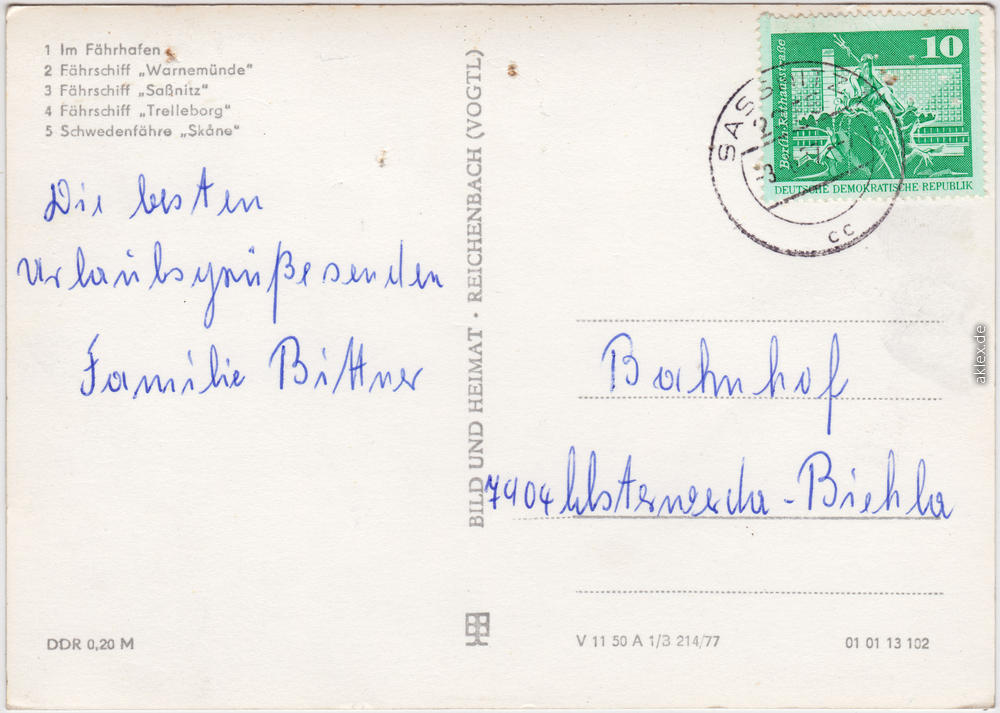 1 Im Fährhafen
2 Fährschiff „Warnemünde"
3 Fährschiff „Saßnitz"
4 Fährschiff „Trelleborg"
5 Schwedenfähre „Skåne"
Die besten
Urlaubsgrüße senden
Familie Bittner
DDR 0,20 M
BILD UND HEIMAT · REICHENBACH (VOGTL)
10
Berlin, Rathausstraße
DEUTSCHE DEMOKRATISCHE REPUBLIK
SASSNITZ
cc
Bahnhof
7904 Elsterwerda-Biehla
V 11 50 A 1/3 214/77
01 01 13 102
aklex.de